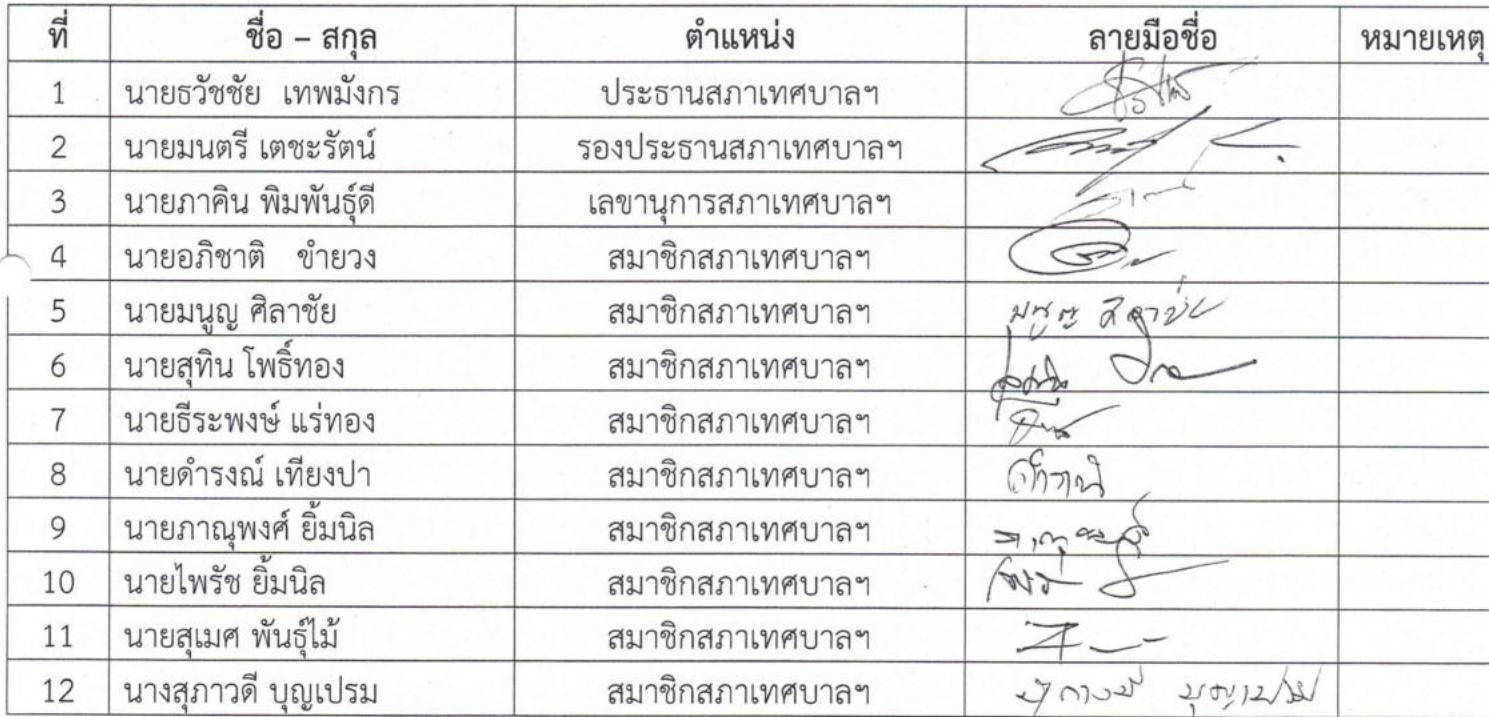 ที่ ชื่อ – สกุล ตำแหน่ง ลายมือชื่อ หมายเหตุ
1 นายธวัชชัย เทพมังกร ประธานสภาเทศบาลฯ
2 นายมนตรี เตชะรัตน์ รองประธานสภาเทศบาลฯ
3 นายภาคิน พิมพันธุ์ดี เลขานุการสภาเทศบาลฯ
4 นายอภิชาติ ขำยวง สมาชิกสภาเทศบาลฯ
5 นายมนูญ ศิลาชัย สมาชิกสภาเทศบาลฯ มนูญ ศิลาชัย
6 นายสุทิน โพธิ์ทอง สมาชิกสภาเทศบาลฯ
7 นายธีระพงษ์ แร่ทอง สมาชิกสภาเทศบาลฯ
8 นายดำรงณ์ เทียงปา สมาชิกสภาเทศบาลฯ
9 นายภาณุพงศ์ ยิ้มนิล สมาชิกสภาเทศบาลฯ
10 นายไพรัช ยิ้มนิล สมาชิกสภาเทศบาลฯ
11 นายสุเมศ พันธุ์ไม้ สมาชิกสภาเทศบาลฯ
12 นางสุภาวดี บุญเปรม สมาชิกสภาเทศบาลฯ สุภาวดี บุญเปรม